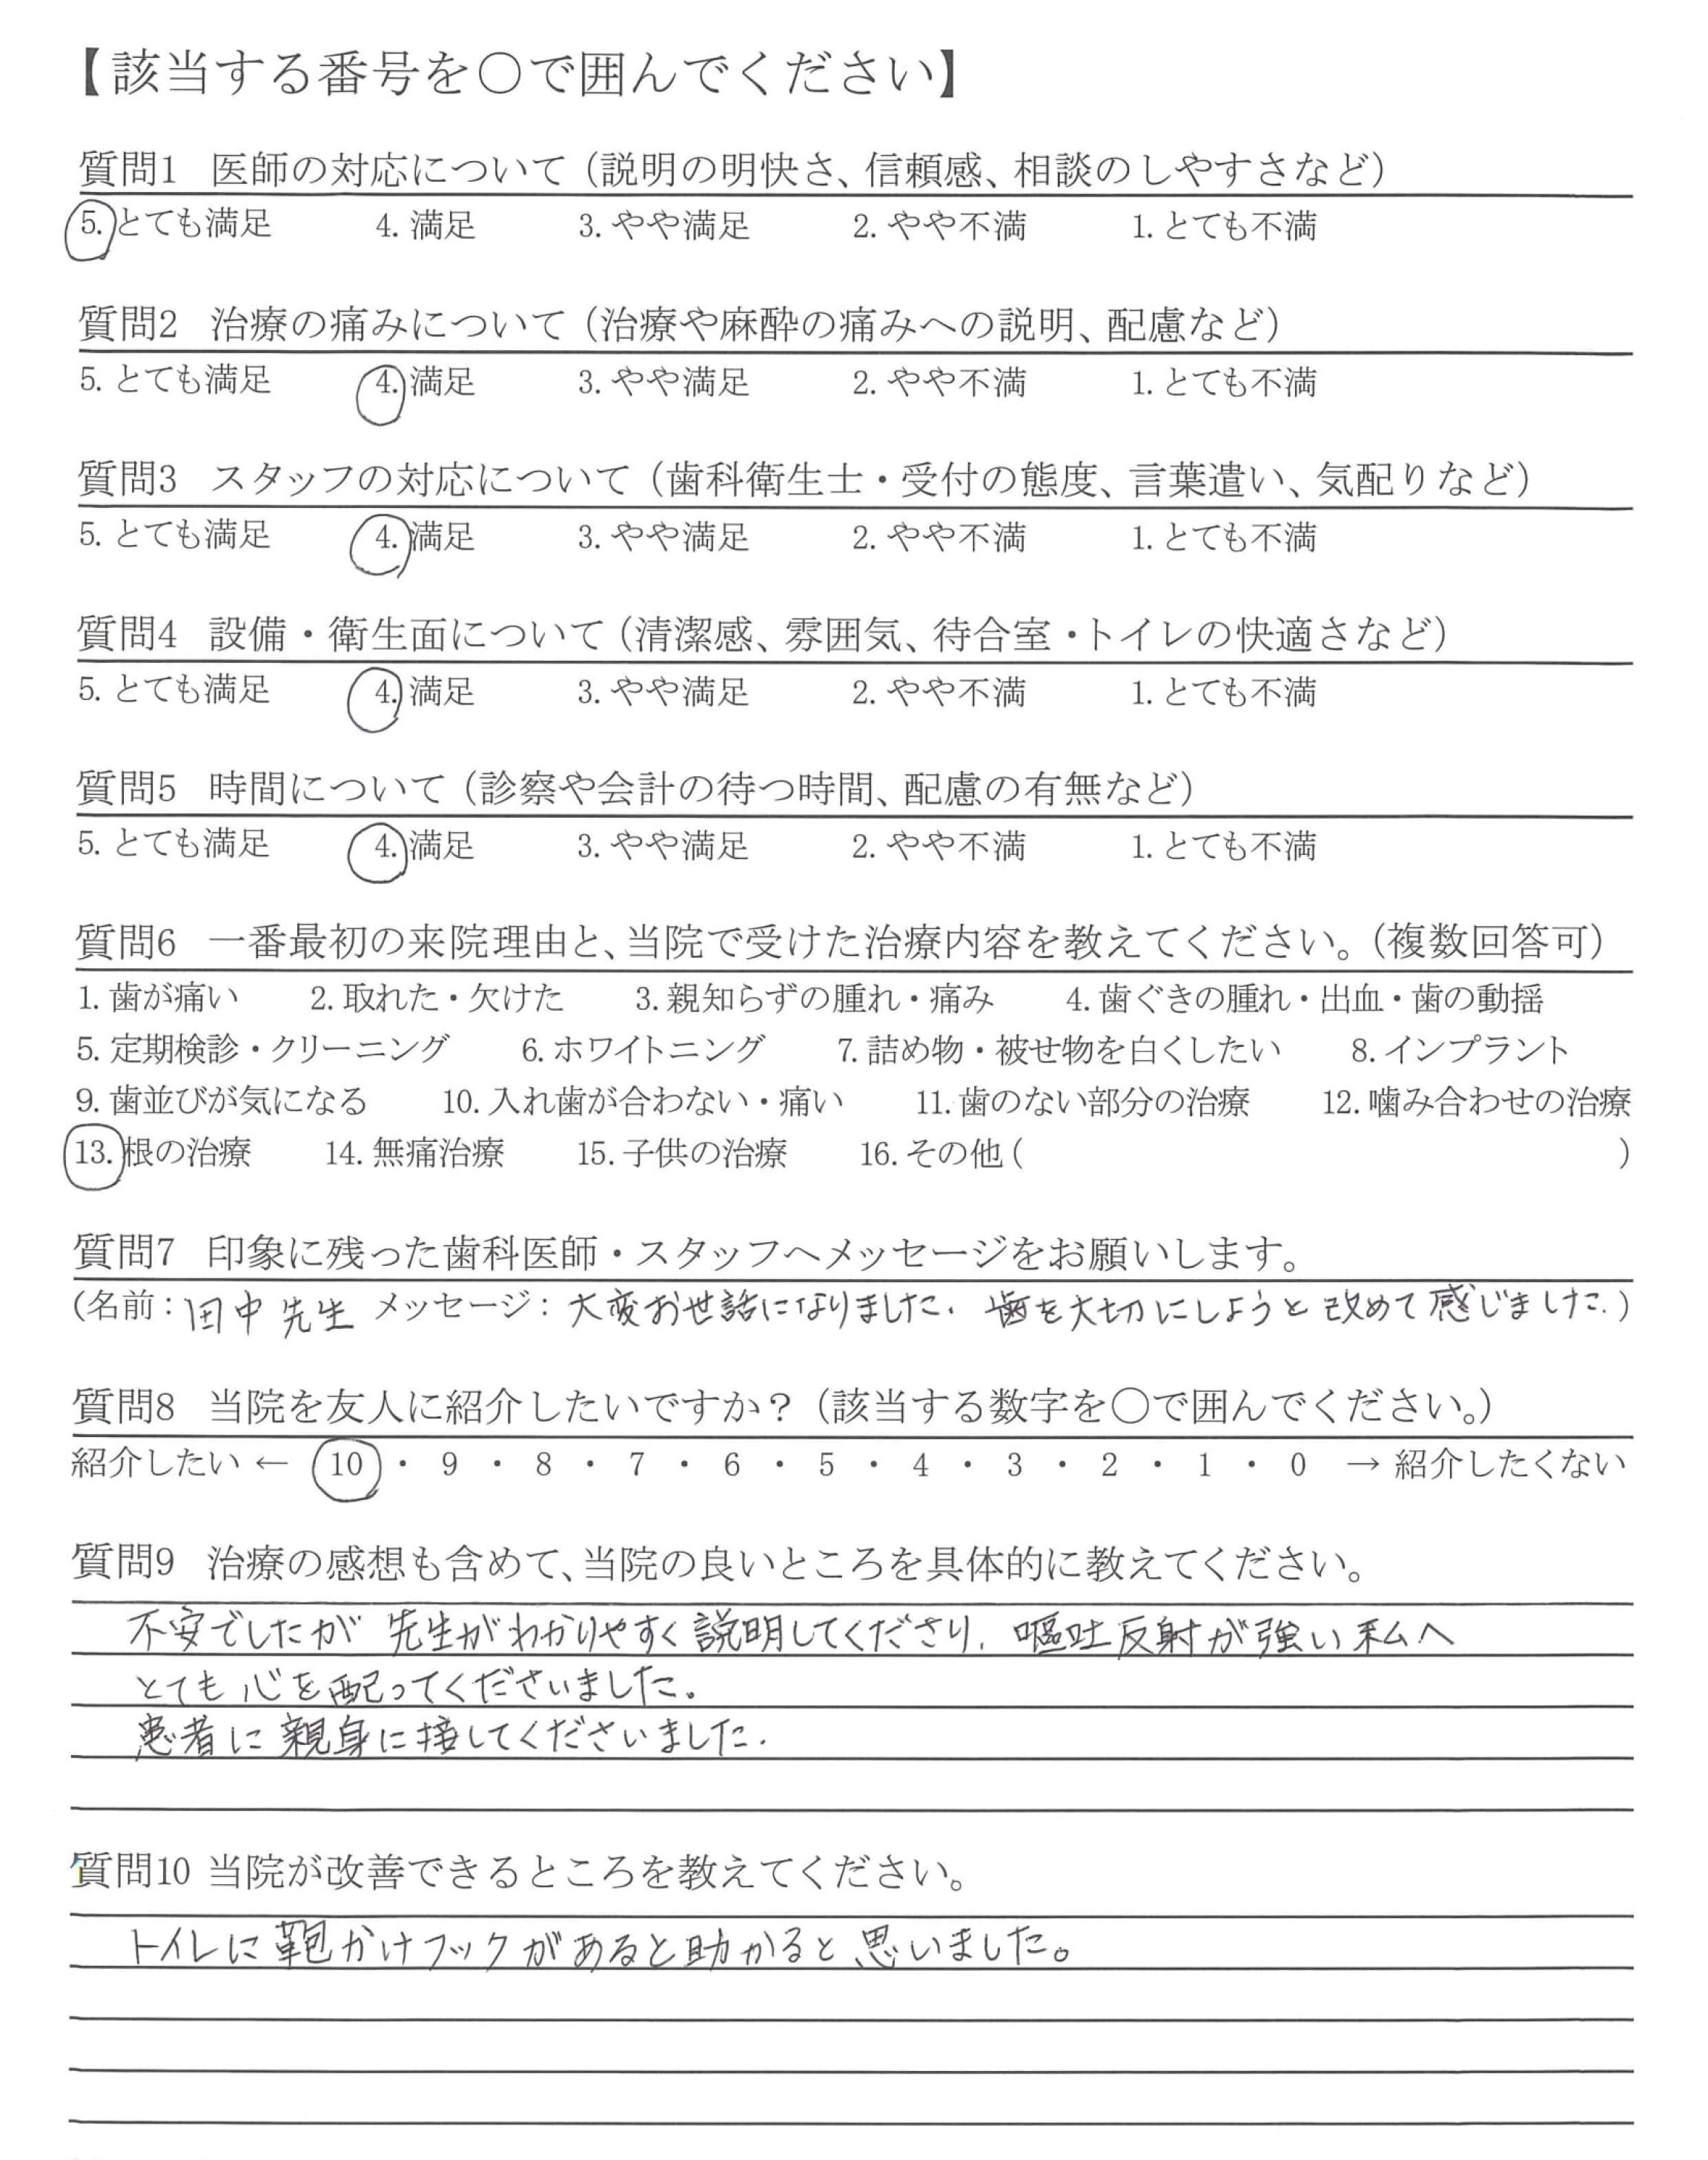 【該当する番号を○で囲んでください】
質問1 医師の対応について（説明の明快さ、信頼感、相談のしやすさなど）
5. とても満足 4. 満足 3. やや満足 2. やや不満 1. とても不満
質問2 治療の痛みについて（治療や麻酔の痛みへの説明、配慮など）
5. とても満足 4. 満足 3. やや満足 2. やや不満 1. とても不満
質問3 スタッフの対応について（歯科衛生士・受付の態度、言葉遣い、気配りなど）
5. とても満足 4. 満足 3. やや満足 2. やや不満 1. とても不満
質問4 設備・衛生面について（清潔感、雰囲気、待合室・トイレの快適さなど）
5. とても満足 4. 満足 3. やや満足 2. やや不満 1. とても不満
質問5 時間について（診察や会計の待つ時間、配慮の有無など）
5. とても満足 4. 満足 3. やや満足 2. やや不満 1. とても不満
質問6 一番最初の来院理由と、当院で受けた治療内容を教えてください。（複数回答可）
1. 歯が痛い 2. 取れた・欠けた 3. 親知らずの腫れ・痛み 4. 歯ぐきの腫れ・出血・歯の動揺
5. 定期検診・クリーニング 6. ホワイトニング 7. 詰め物・被せ物を白くしたい 8. インプラント
9. 歯並びが気になる 10. 入れ歯が合わない・痛い 11. 歯のない部分の治療 12. 噛み合わせの治療
13. 根の治療 14. 無痛治療 15. 子供の治療 16. その他（ ）
質問7 印象に残った歯科医師・スタッフへメッセージをお願いします。
（名前：田中先生 メッセージ：大変お世話になりました. 歯を大切にしようと改めて感じました.）
質問8 当院を友人に紹介したいですか？（該当する数字を○で囲んでください。）
紹介したい ← 10 ・ 9 ・ 8 ・ 7 ・ 6 ・ 5 ・ 4 ・ 3 ・ 2 ・ 1 ・ 0 → 紹介したくない
質問9 治療の感想も含めて、当院の良いところを具体的に教えてください。
不安でしたが 先生がわかりやすく説明してくださり、嘔吐反射が強い私へ
とても心を配ってくださいました。
患者に親身に接してくださいました.
質問10 当院が改善できるところを教えてください。
トイレに鞄かけフックがあると助かると思いました。